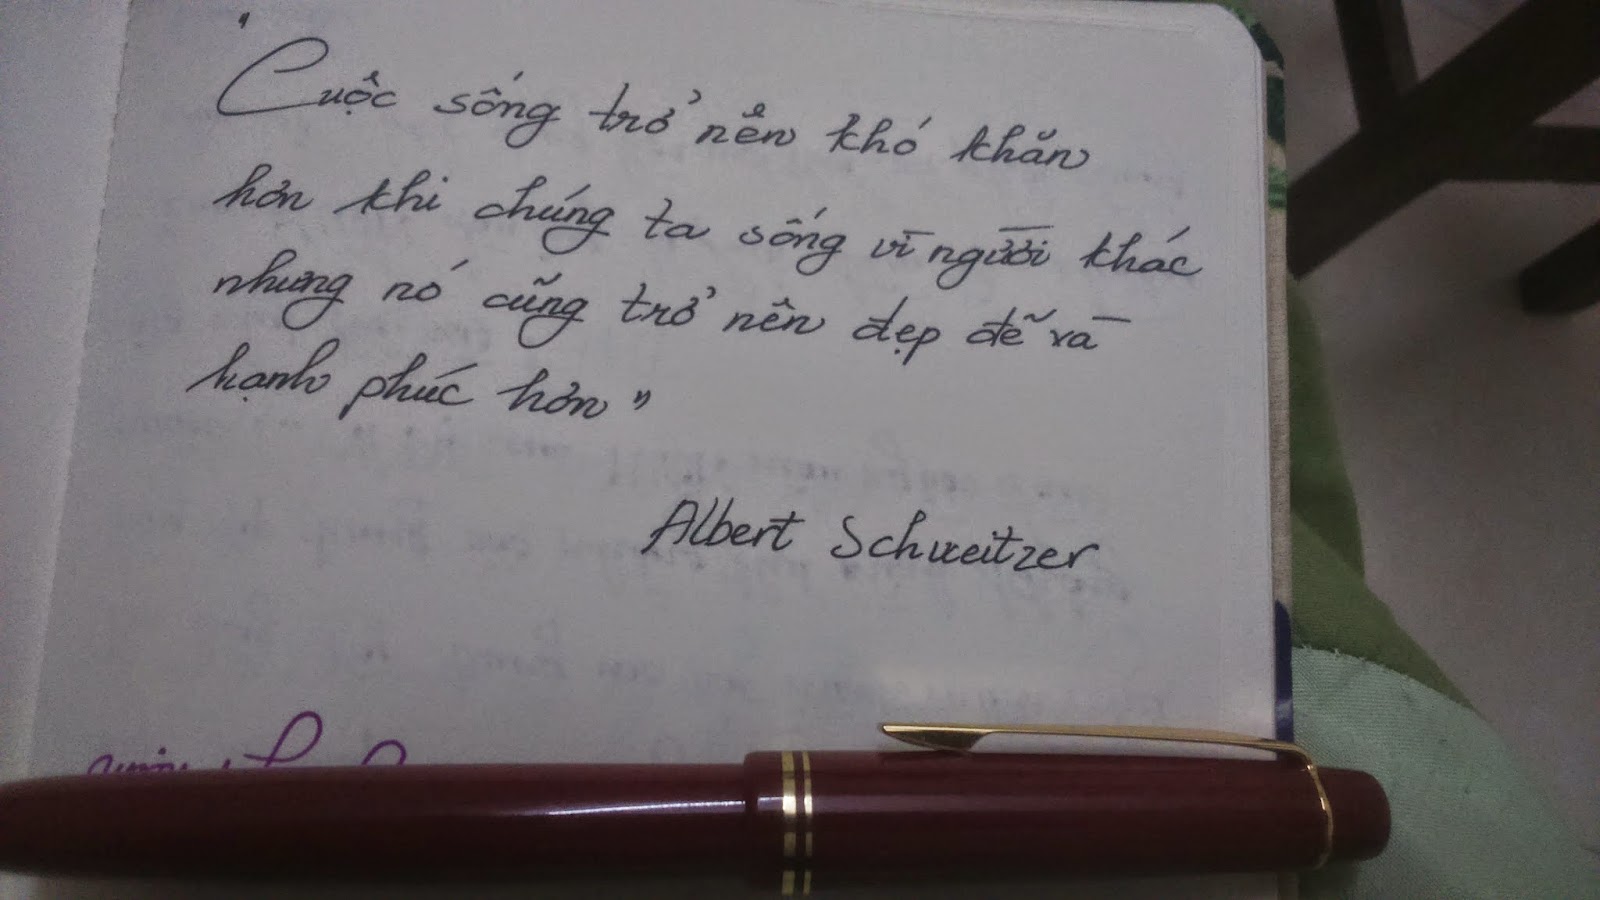 "Cuộc sống trở nên khó khăn
hơn khi chúng ta sống vì người khác
nhưng nó cũng trở nên đẹp đẽ và
hạnh phúc hơn"
Albert Schweitzer